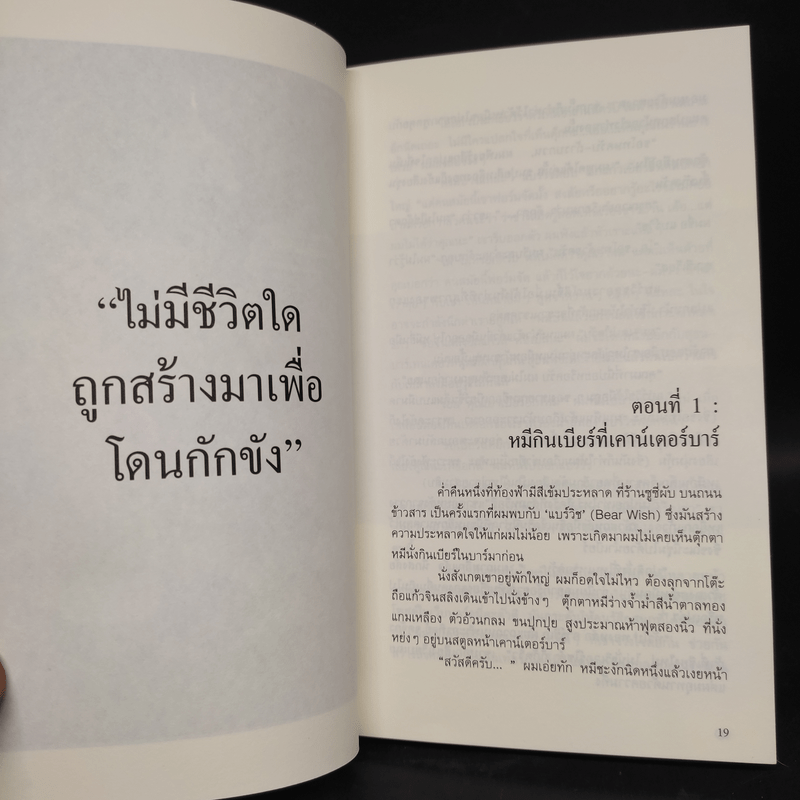 “ไม่มีชีวิตใด
ถูกสร้างมาเพื่อ
โดนกักขัง”
ตอนที่ 1 :
หมีกินเบียร์ที่เคาน์เตอร์บาร์
ค่ำคืนหนึ่งที่ท้องฟ้ามีสีเข้มประหลาด ที่ร้านซูซี่ผับ บนถนน
ข้าวสาร เป็นครั้งแรกที่ผมพบกับ ‘แบร์วิช’ (Bear Wish) ซึ่งมันสร้าง
ความประหลาดใจให้แก่ผมไม่น้อย เพราะเกิดมาผมไม่เคยเห็นตุ๊กตา
หมีนั่งกินเบียร์ในบาร์มาก่อน
นั่งสังเกตเขาอยู่พักใหญ่ ผมก็อดใจไม่ไหว ต้องลุกจากโต๊ะ
ถือแก้วจินสลิงเดินเข้าไปนั่งข้างๆ ตุ๊กตาหมีร่างจ้ำม่ำสีน้ำตาลทอง
แกมเหลือง ตัวอ้วนกลม ขนปุกปุย สูงประมาณห้าฟุตสองนิ้ว ที่นั่ง
หย่งๆ อยู่บนสตูลหน้าเคาน์เตอร์บาร์
“สวัสดีครับ... ” ผมเอ่ยทัก หมีชะงักนิดหนึ่งแล้วเงยหน้า
19